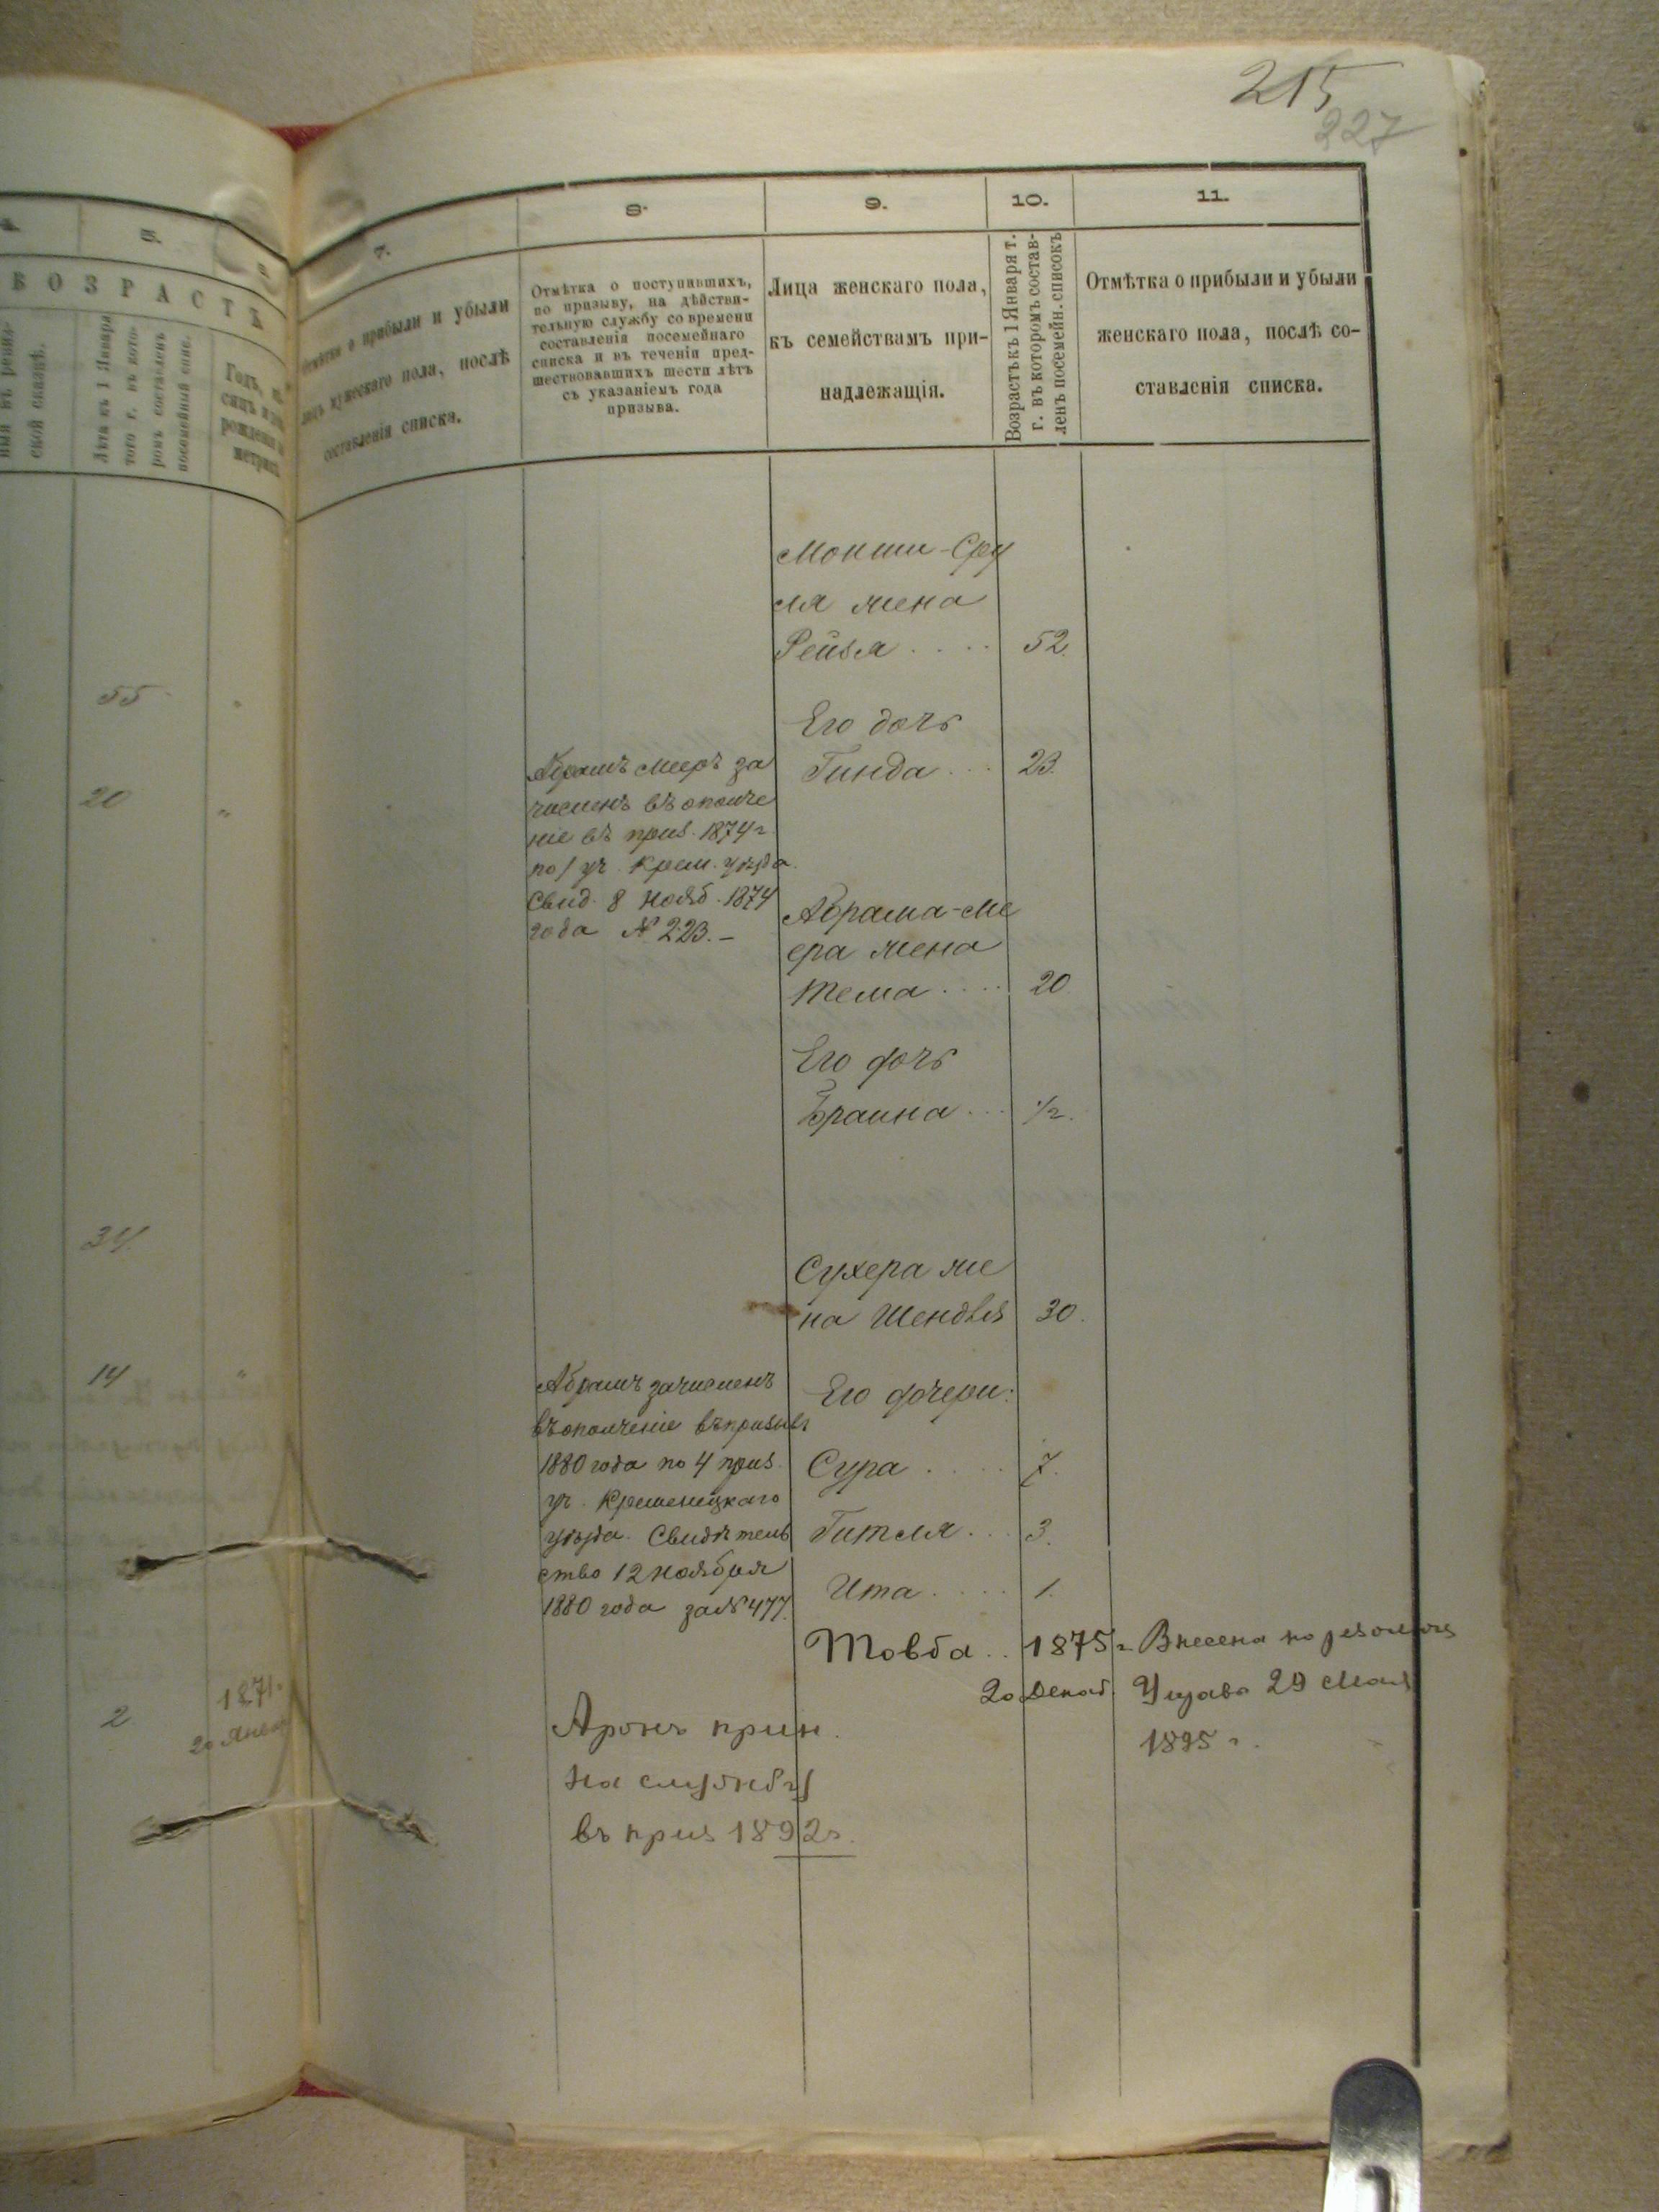 215
227
4.
5.
ВОЗРАСТЪ
Лѣта къ 1 Января
того г. въ кото-
ромъ составленъ
посемейный спис.
55
20
"
34.
14
"
2
1871.
20 Янва
7.
8.
9.
10.
11.
Отмѣтка о прибыли и убыли
лицъ мужескаго пола, послѣ
составленія списка.
Отмѣтка о поступившихъ,
по призыву, на дѣйстви-
тельную службу со времени
составленія посемейнаго
списка и въ теченіи пред-
шествовавшихъ шести лѣтъ
съ указаніемъ года
призыва.
Лица женскаго пола,
къ семействамъ при-
надлежащія.
Возрастъ къ 1 Января т.
г. въ которомъ состав-
ленъ посемейн. списокъ
Отмѣтка о прибыли и убыли
женскаго пола, послѣ со-
ставленія списка.
Мошки-Сру
ля жена
Рейзя .... 52.
Его дочь
Гинда ... 23.
Абрамъ Мееръ за
численъ въ ополче
ніе въ приз. 1874 г.
по 1 уч. Крем. уѣзда.
Свид. 8 Нояб. 1874
года № 223.-
Абрама-Ме
ера жена
Тема .... 20
Его дочь
Браина ... 1/2.
Сухера же
на Шендля 30.
Абрамъ зачисленъ
въ ополченіе въ призывъ
1880 года по 4 приз.
уч. Кременецкаго
уѣзда. Свидѣтель
ство 12 Ноября
1880 года за № 477.
Его дочери:
Сура .... 7.
Гитля ... 3.
Ита .... 1.
Товба .. 1875 г. Внесена по
20 Декаб. 29 Мая
1895 г.
Аронъ прин.
на службу
въ приз 1892 г.